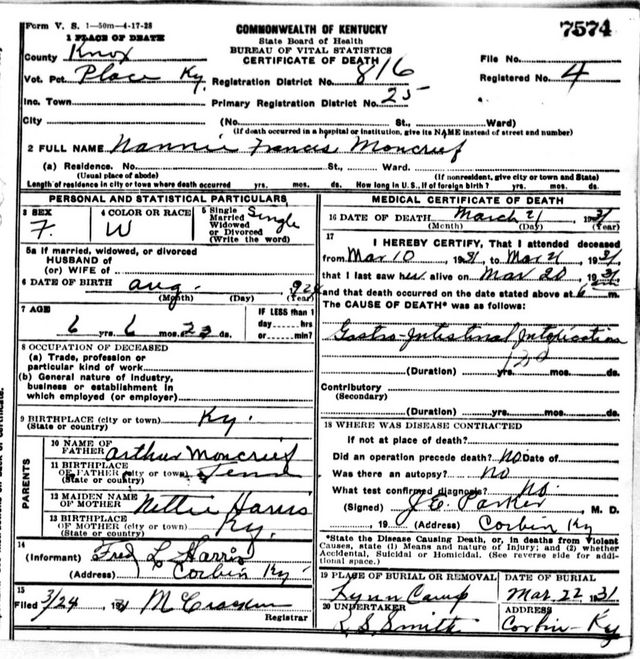 Form V. S. 1—50m—4-17-28
COMMONWEALTH OF KENTUCKY
State Board of Health
BUREAU OF VITAL STATISTICS
CERTIFICATE OF DEATH
7574
1 PLACE OF DEATH
County Knox
Vot. Pct. Place Ky
Registration District No. 816
File No.
Inc. Town
Primary Registration District No. 25
Registered No. 4
City (No. St., Ward)
(If death occurred in a hospital or institution, give its NAME instead of street and number)
2 FULL NAME Nannie Frances Moncrief
(a) Residence. No. St., Ward.
(Usual place of abode) (If nonresident, give city or town and State)
Length of residence in city or town where death occurred yrs. mos. ds. How long in U. S., if of foreign birth? yrs. mos. ds.
PERSONAL AND STATISTICAL PARTICULARS
3 SEX F.
4 COLOR OR RACE W
5 Single Married Widowed or Divorced (Write the word) Single
5a If married, widowed, or divorced
HUSBAND of
(or) WIFE of
6 DATE OF BIRTH Aug. 924
(Month) (Day) (Year)
7 AGE 6 yrs. 6 mos. 23 ds.
IF LESS than 1 day hrs or min?
8 OCCUPATION OF DECEASED
(a) Trade, profession or
particular kind of work
(b) General nature of industry,
business or establishment in
which employed (or employer)
9 BIRTHPLACE (city or town) Ky.
(State or country)
PARENTS
10 NAME OF
FATHER Arthur Moncrief
11 BIRTHPLACE
OF FATHER (city or town) Tenn
(State or country)
12 MAIDEN NAME
OF MOTHER Nettie Harris
13 BIRTHPLACE Ky.
OF MOTHER (city or town)
(State or country)
14
(Informant) Fred L Harris
(Address) Corbin Ky
15
Filed 3/24, 1931 McCracken
Registrar
MEDICAL CERTIFICATE OF DEATH
16 DATE OF DEATH March 21 1931
(Month) (Day) (Year)
17
I HEREBY CERTIFY, That I attended deceased
from Mar 10, 1931, to Mar 21, 1931,
that I last saw her alive on Mar 20, 1931,
and that death occurred on the date stated above at 6 m.
The CAUSE OF DEATH* was as follows:
Gastro-Intestinal Intoxication
(Duration) yrs. mos. ds.
Contributory
(Secondary)
(Duration) yrs. mos. ds.
18 WHERE WAS DISEASE CONTRACTED
If not at place of death?
Did an operation precede death? No Date of
Was there an autopsy? No
What test confirmed diagnosis? No
(Signed) J. C. Parker, M. D.
, 19 (Address) Corbin Ky
*State the Disease Causing Death, or, in deaths from Violent
Causes, state (1) Means and nature of Injury; and (2) whether
Accidental, Suicidal or Homicidal. (See reverse side for addi-
tional space.)
19 PLACE OF BURIAL OR REMOVAL Lynn Camp
DATE OF BURIAL Mar. 22, 1931
20 UNDERTAKER R S Smith
ADDRESS Corbin-Ky